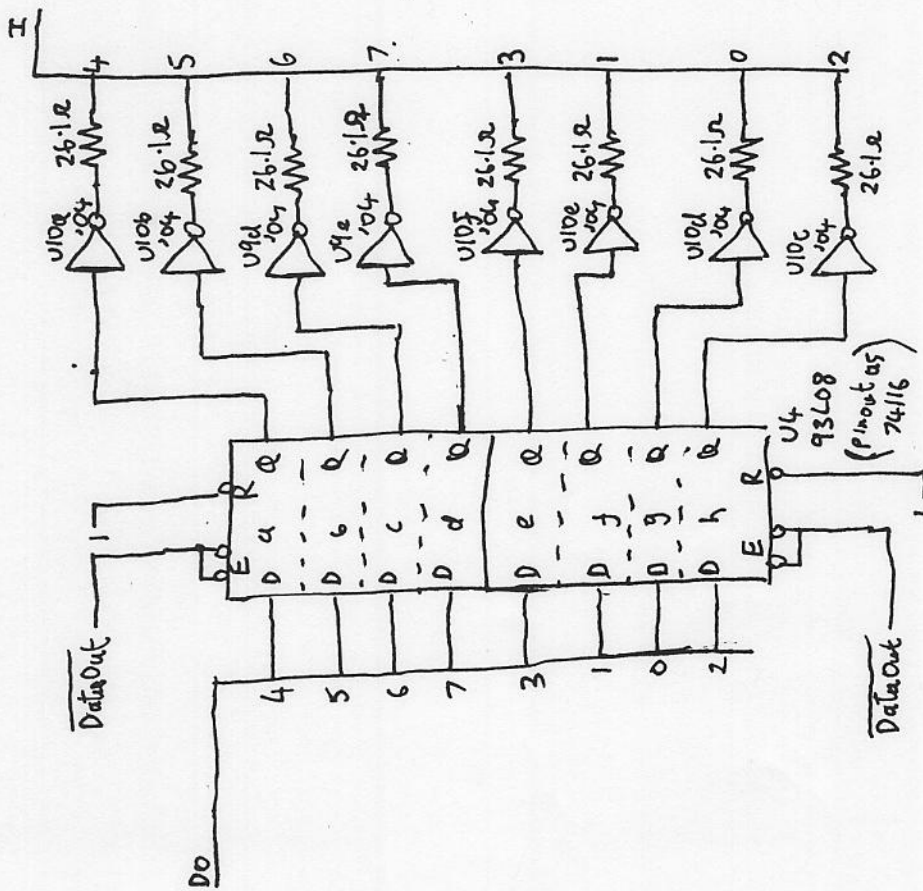 I
4
5
6
7.
3
1
0
2
26.1Ω
26.1Ω
26.1Ω
26.1Ω
26.1Ω
26.1Ω
26.1Ω
26.1Ω
U10a
'04
U10b
'04
U9d
'04
U9e
'04
U10f
'04
U10e
'04
U10d
'04
U10c
'04
Q
Q
Q
Q
Q
Q
Q
Q
R
a
b
c
d
e
f
g
h
R
E
D
D
D
D
D
D
D
D
E
U4
93L08
(Pinout as
74116)
1
1
DataOut
DataOut
4
5
6
7
3
1
0
2
DO